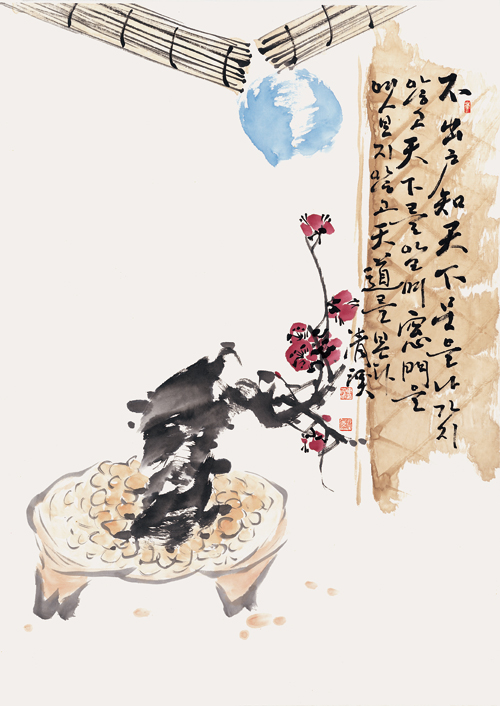 不出戶知天下 문을 나가지
않고 天下를 알며 窓門을
엿보지 않고 天道를 본다